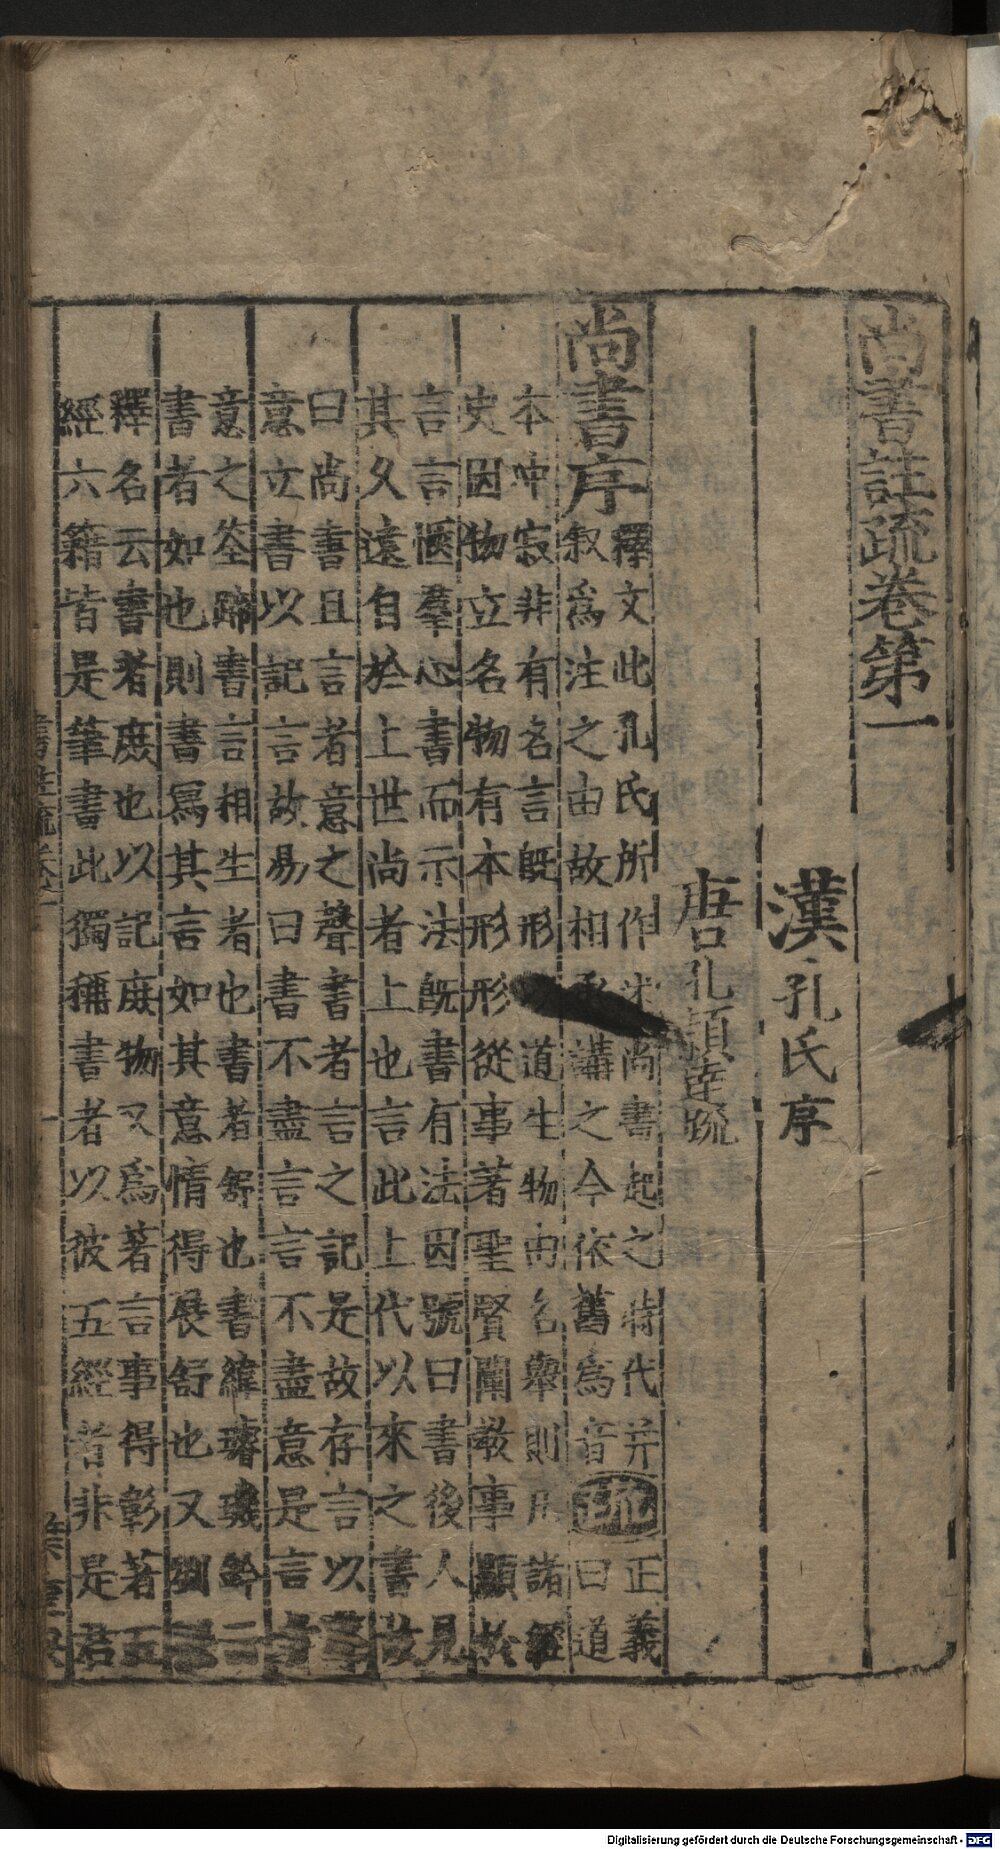 尚書註疏卷第一
漢孔氏序
唐孔穎達疏
尚書序
釋文此孔氏所作尚書起之時代并
叙爲注之由故相承講之今依舊爲音
疏
正義
曰道
本冲寂非有名言既形道生物由名舉則凡諸經
史因物立名物有本形形從事著聖賢闡教事顯於
言言愜羣心書而示法既書有法因號曰書後人見
其久遠自於上世尚者上也言此上代以來之書故
曰尚書且言者意之聲書者言之記是故存言以聲
意立書以記言故易曰書不盡言言不盡意是言者
意之筌蹄書言相生者也書者舒也書緯璿璣鈐云
書者如也則書寫其言如其意情得展舒也又劉
釋名云書者庶也以記庶物又爲著言事得彰著五
經六籍皆是筆書此獨稱書者以彼五經者非是君
書註疏卷一
Digitalisierung gefördert durch die Deutsche Forschungsgemeinschaft - DFG